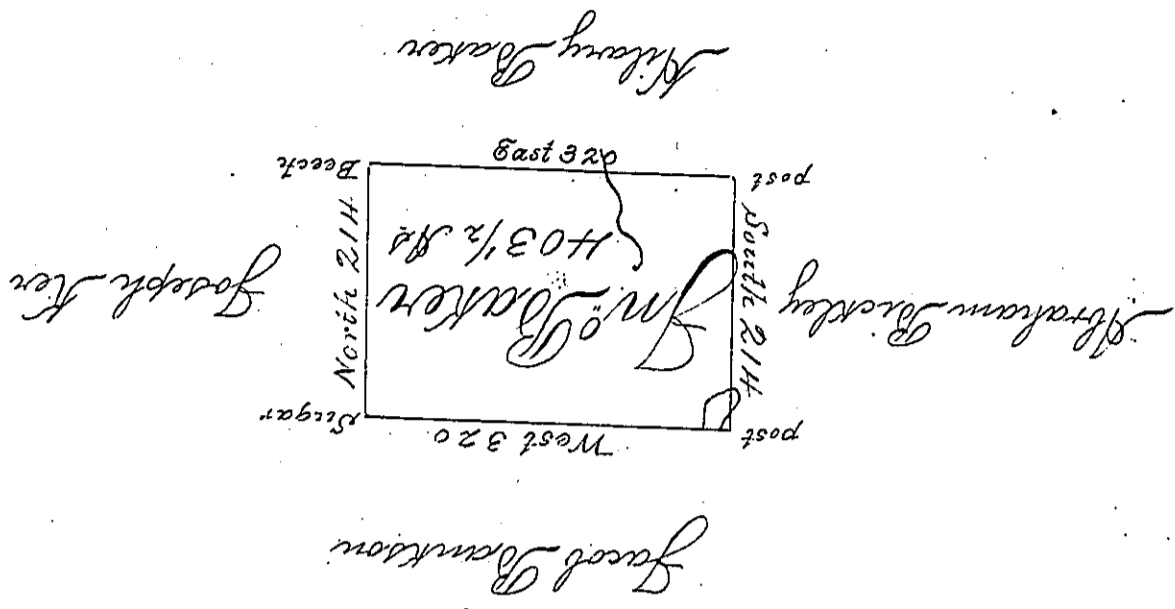 Jacob Bankson
post West 320 Sugar
Abraham Bickley
South 214
Jnº Baker
403 1/2 As
North 214
Joseph Ker
post East 320 Beech
Hilary Baker